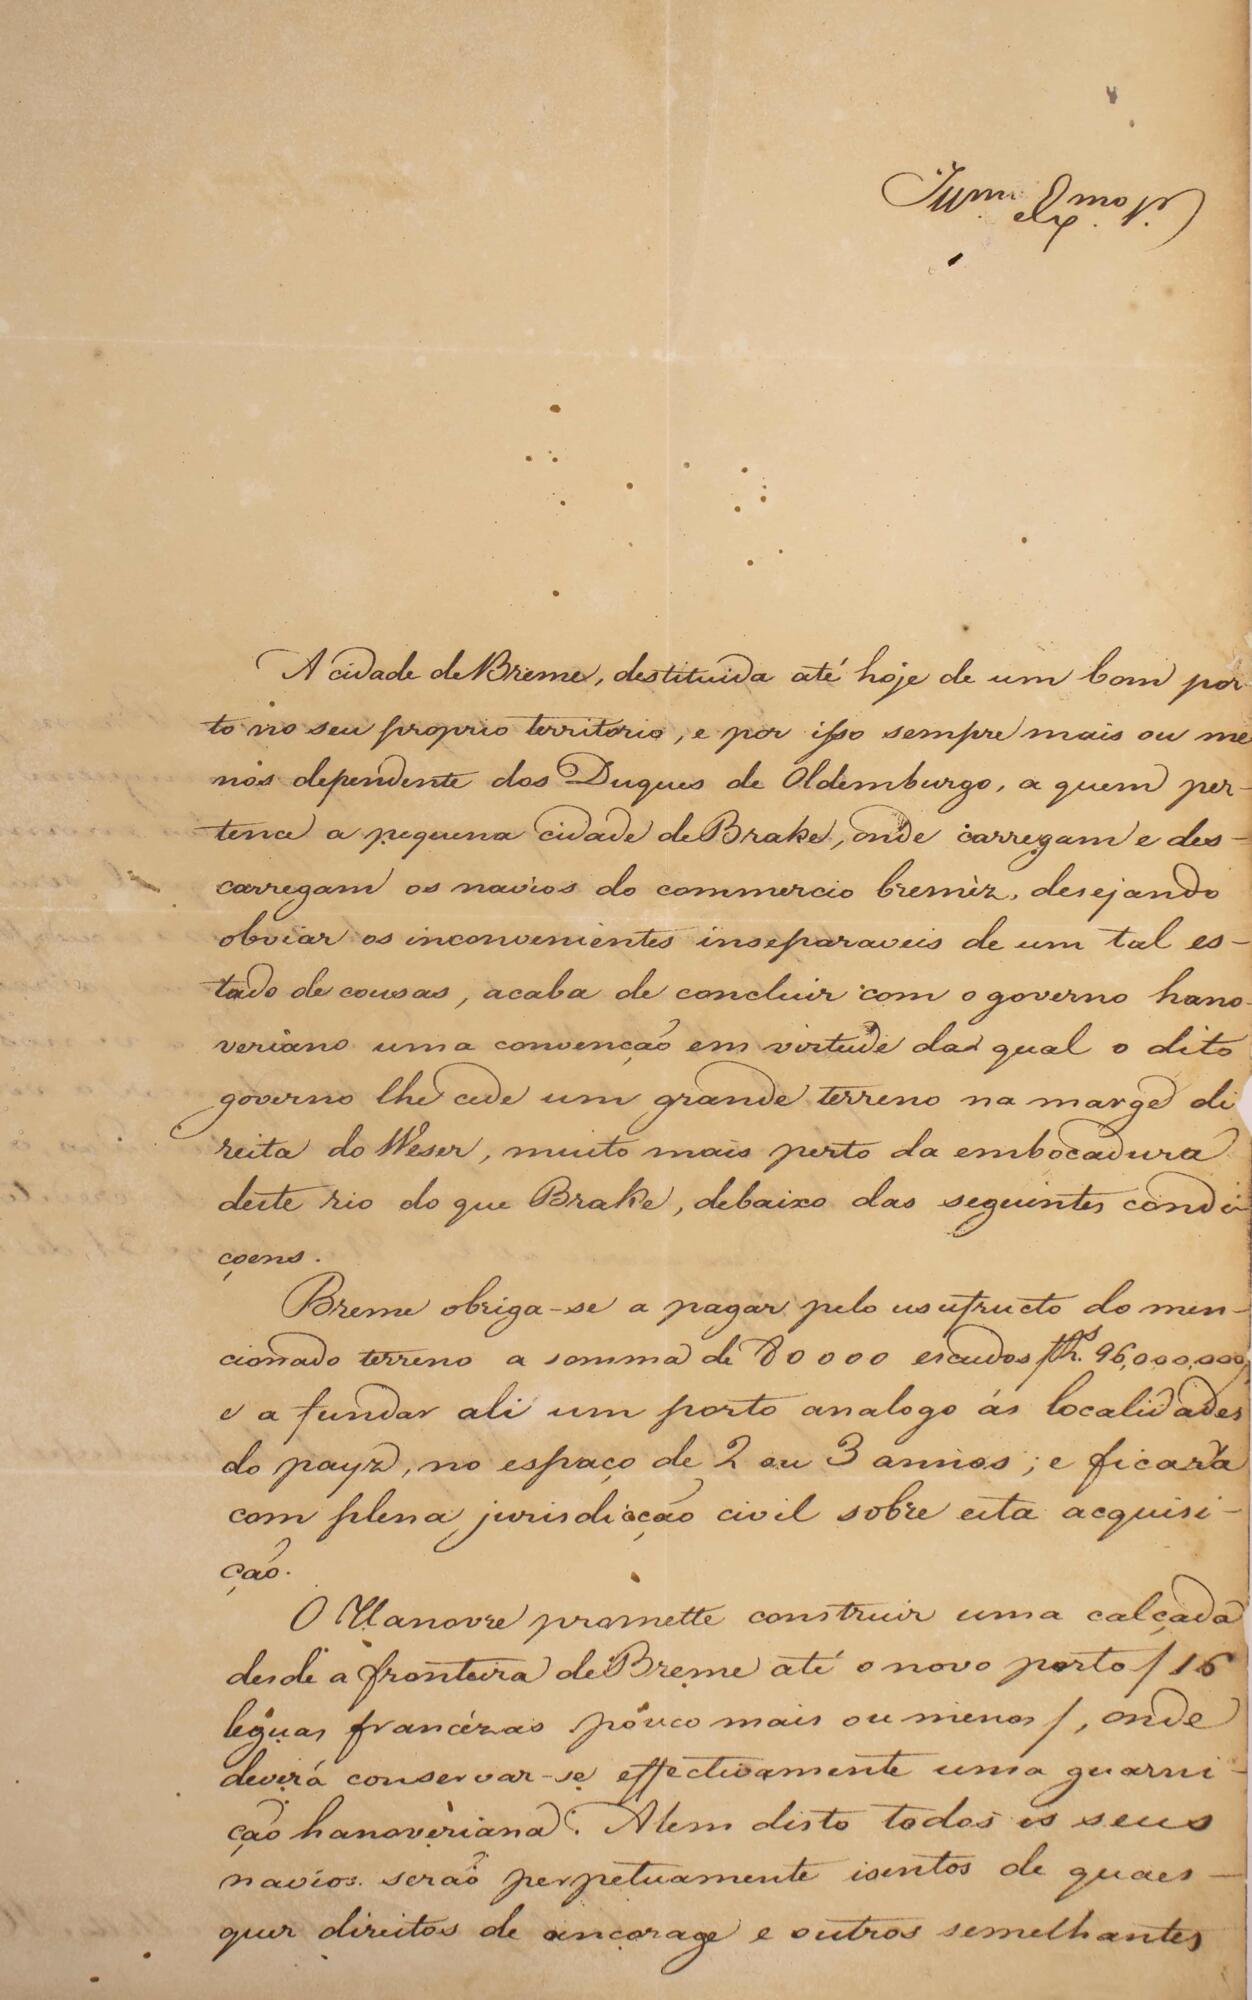 Illmo. Exmo. Sr.
A cidade de Breme, destituida até hoje de um bom por
to no seu proprio territorio, e por isso sempre mais ou me
nos dependente dos Duques de Oldemburgo, a quem per-
tence a pequena cidade de Brake, onde carregam e des-
carregam os navios do commercio bremèz, desejando
obviar os inconvenientes inseparaveis de um tal es-
tado de cousas, acaba de concluir com o governo hano-
veriano uma convenção em virtude da qual o dito
governo lhe cede um grande terreno na marge di
reita do Weser, muito mais perto da embocadura
deste rio do que Brake, debaixo das seguintes condi
çoens.
Breme obriga-se a pagar pelo usufructo do men-
cionado terreno a somma de 80000 escudos /Rs. 96,000,000/
e a fundar ali um porto analogo ás localidades
do payz, no espaço de 2 ou 3 annos; e ficará
com plena jurisdicção civil sobre esta acquisi-
ção.
O Hanovre promette construir uma calçada
desde a fronteira de Breme até o novo porto /16
leguas francézas pouco mais ou menos/, onde
deverá conservar-se effectivamente uma guarni-
ção hanoveriana. Alem disto todos os seus
navios serão perpetuamente isentos de quaes-
quer direitos de ancorage e outros semelhantes